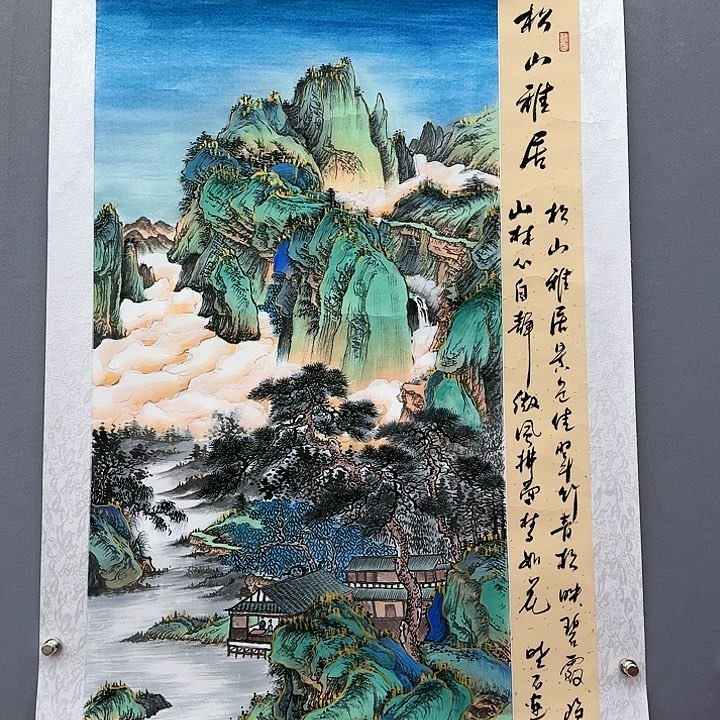 松山雅居
松山雅居景色佳翠竹青松映碧霞
山林心自静微风拂面梦如花